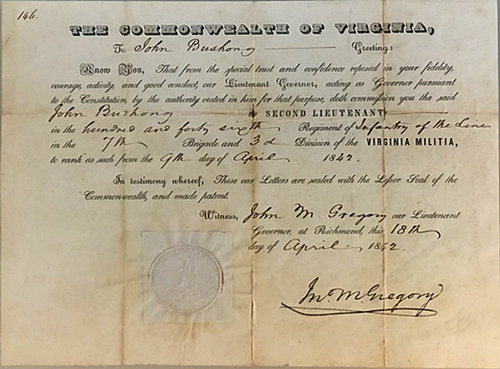 146.
THE COMMONWEALTH OF VIRGINIA,
To John Bushong Greeting:
Know You, That from the special trust and confidence reposed in your fidelity,
courage, activity, and good conduct, our Lieutenant Governor, acting as Governor pursuant
to the Constitution, by the authority vested in him for that purpose, doth commission you the said
John Bushong a SECOND LIEUTENANT
in the hundred and forty sixth Regiment of Infantry of the Line
in the 7th Brigade and 3d Division of the VIRGINIA MILITIA,
to rank as such from the 9th day of April 1842.
In testimony whereof, These our Letters are sealed with the Lesser Seal of the
Commonwealth, and made patent.
Witness, John M. Gregory our Lieutenant
Governor, at Richmond, this 18th
day of April 1842.
Jno. M. Gregory